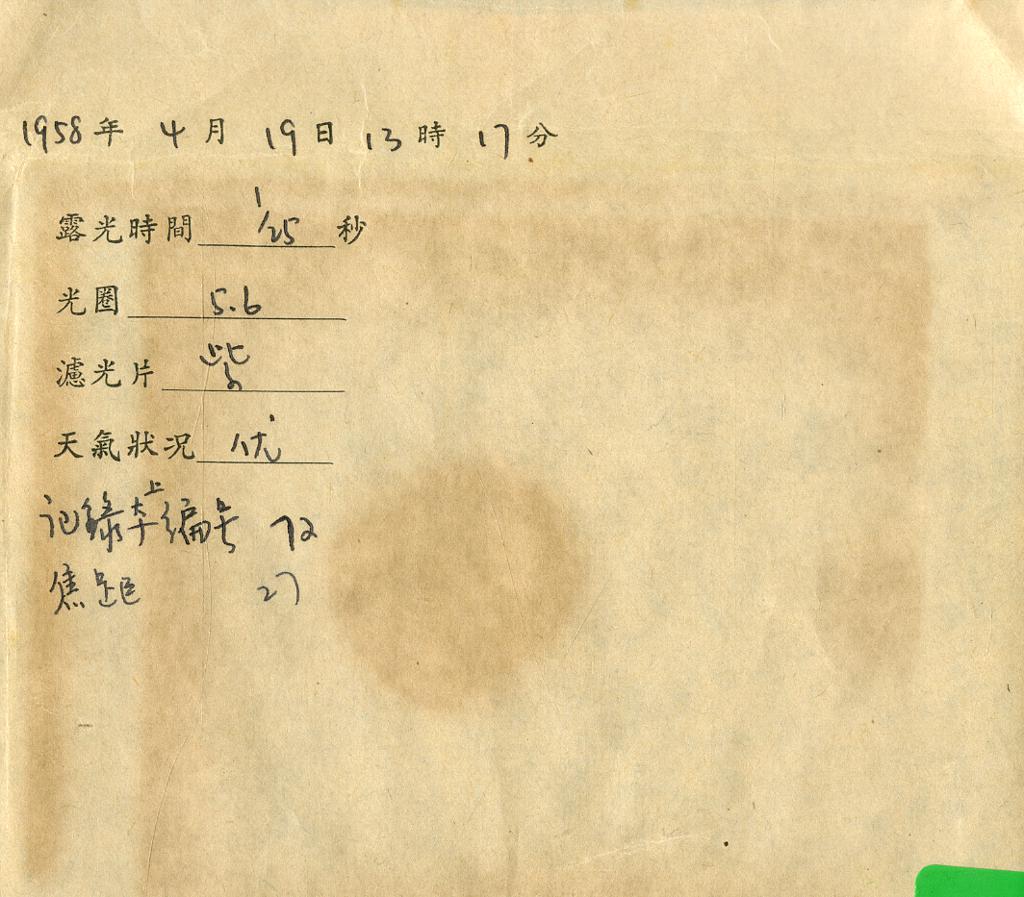 1958年 4月 19日 13時 17分
露光時間 1/25 秒
光圈 5.6
濾光片 紫
天氣狀况 优
记錄本上编号 72
焦距 27